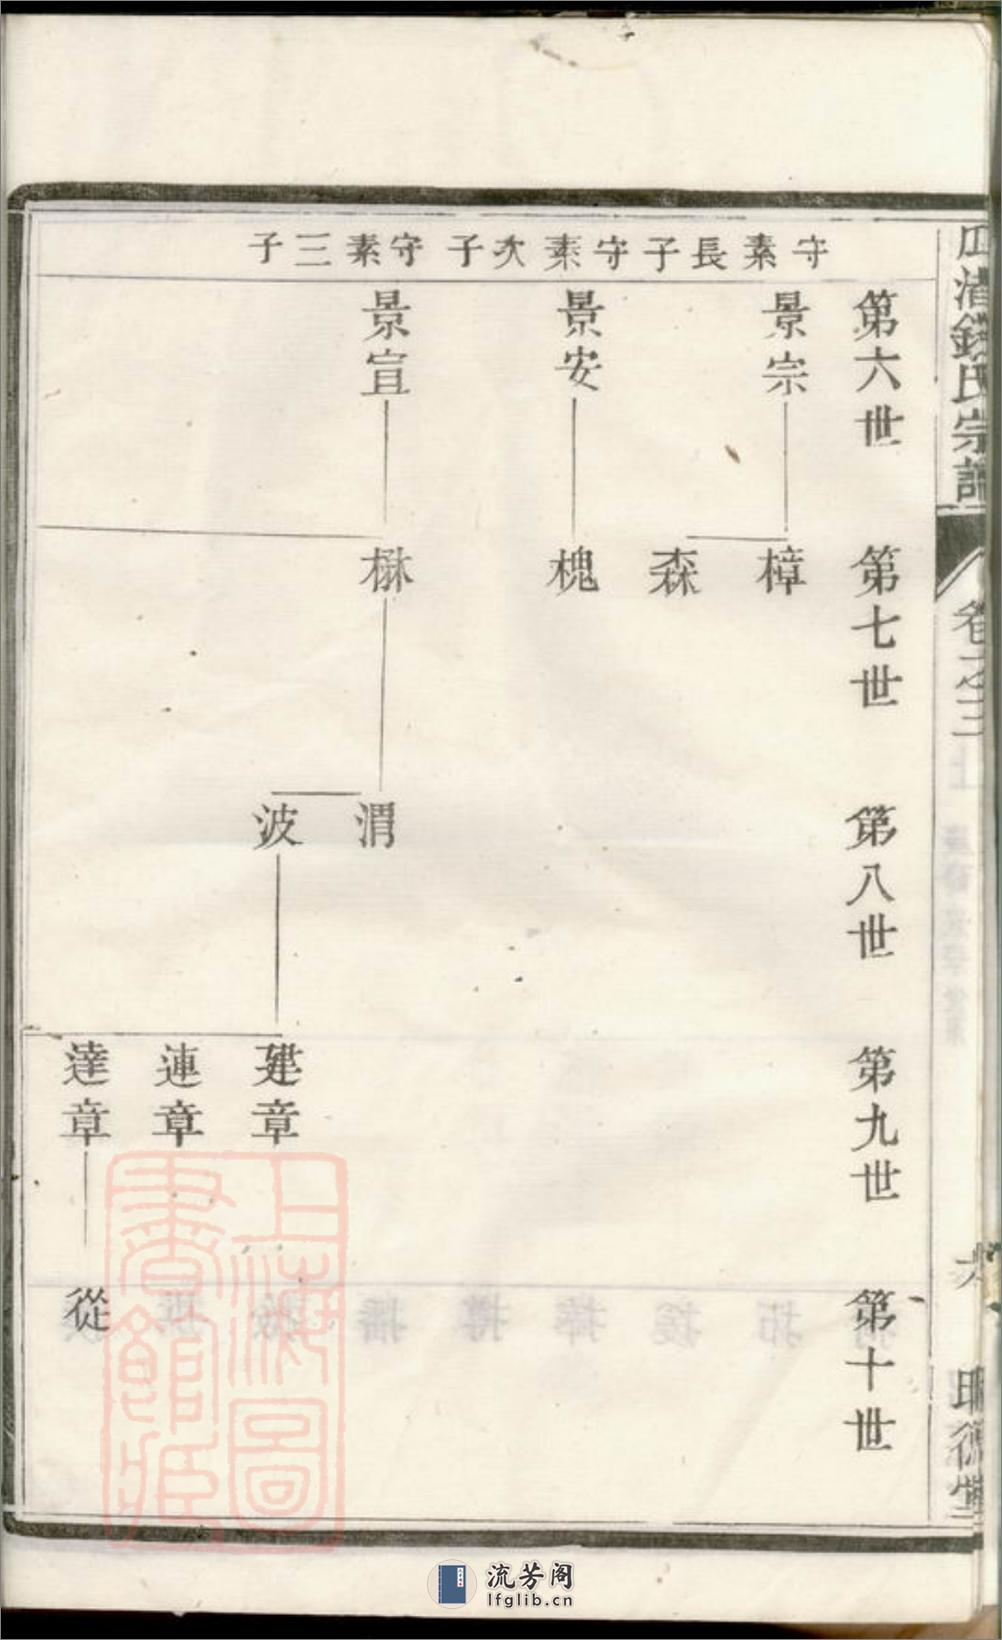 瓜渚錢氏宗譜
卷之三上
六
明德堂
守素長子守素次子守素三子
第六世
景宗
景安
景宣
第七世
樟
森
槐
楙
第八世
渭
波
第九世
建章
連章
達章
第十世
從
上海圖
書館藏
流芳阁
lfglib.cn